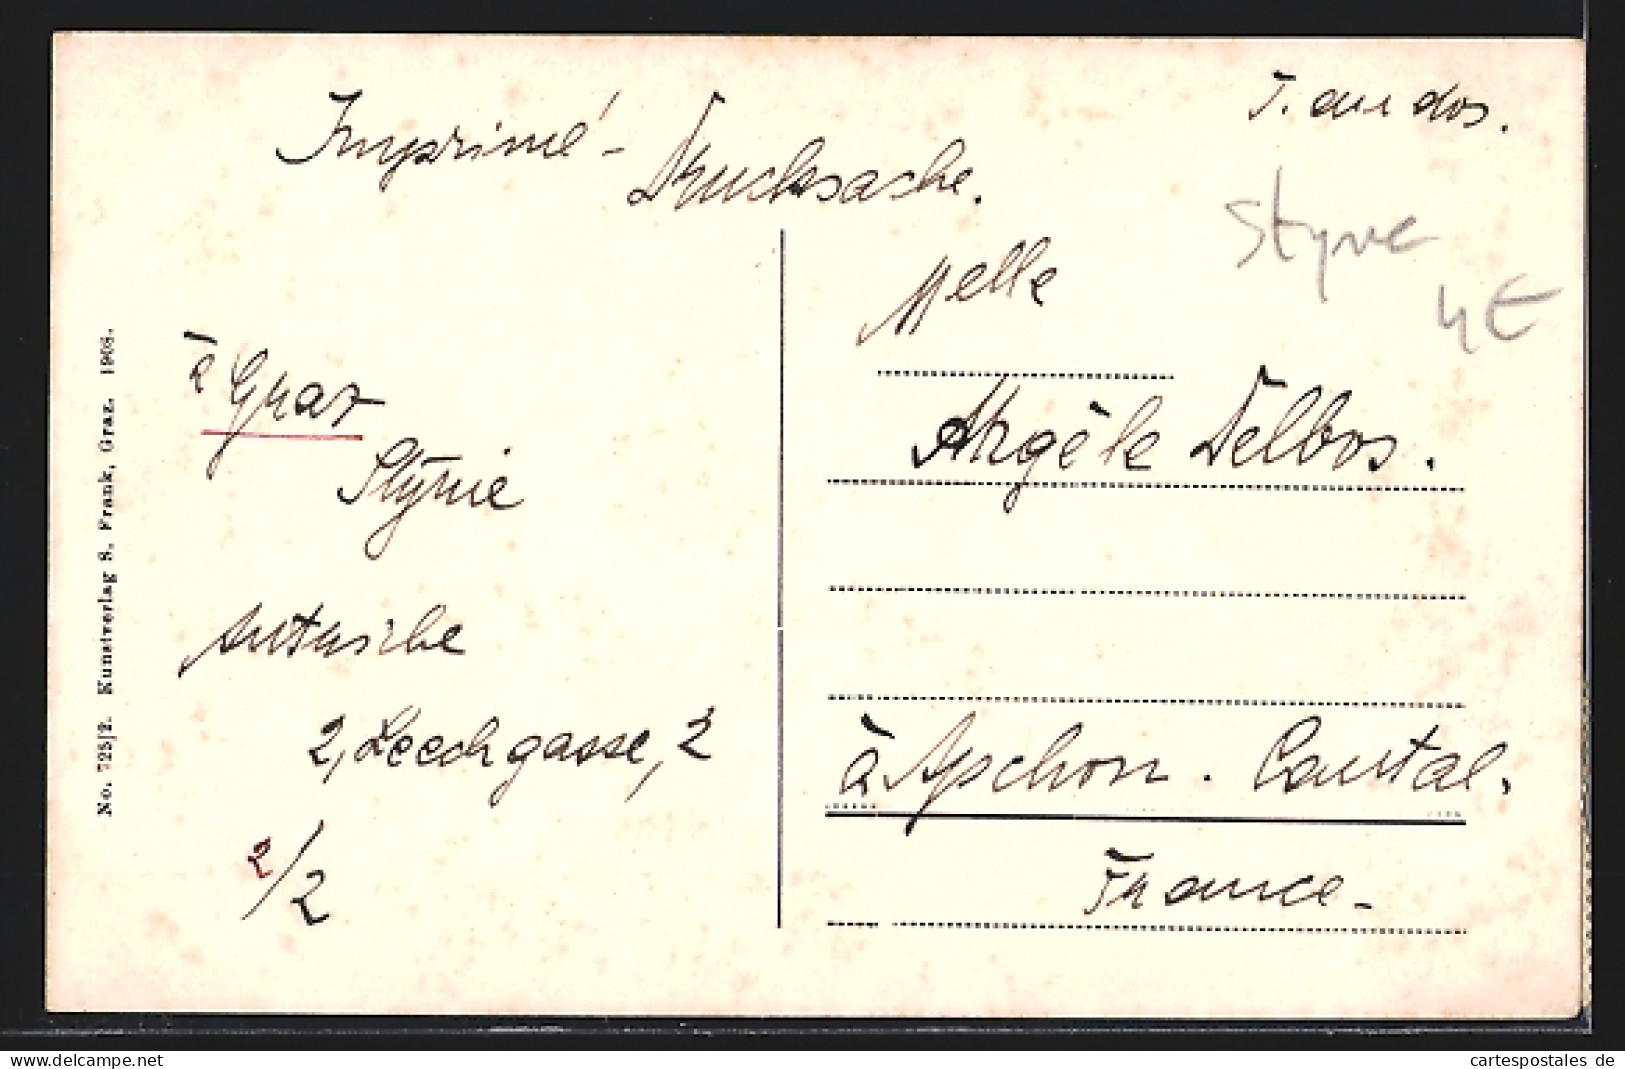 T. au dos.
Imprimé - Drucksache.
Styrie
4€
Melle
Angèle Delbos.
à Apchon. Cantal.
France -
à Graz
Styrie
Autriche
2, Leechgasse, 2
2/2
No. 725/2. Kunstverlag S. Frank, Graz. 1908.
delcampe.net
cartespostales de